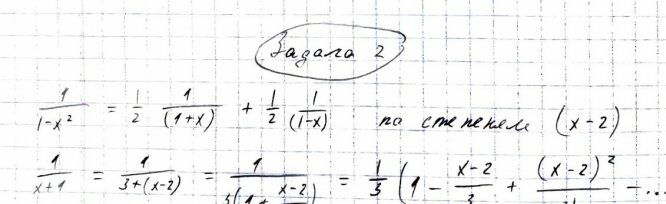 Задача 2
1/(1-x²) = 1/2 1/(1+x) + 1/2 1/(1-x) по степеням (x-2)
1/(x+1) = 1/(3+(x-2)) = 1/(3(1+(x-2)/ )) = 1/3 (1 - (x-2)/3 + (x-2)²/ - ...